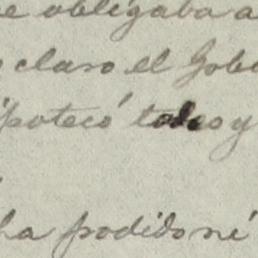 e obligaba a
claro el Gob
ipotecó todo y
ha podido né